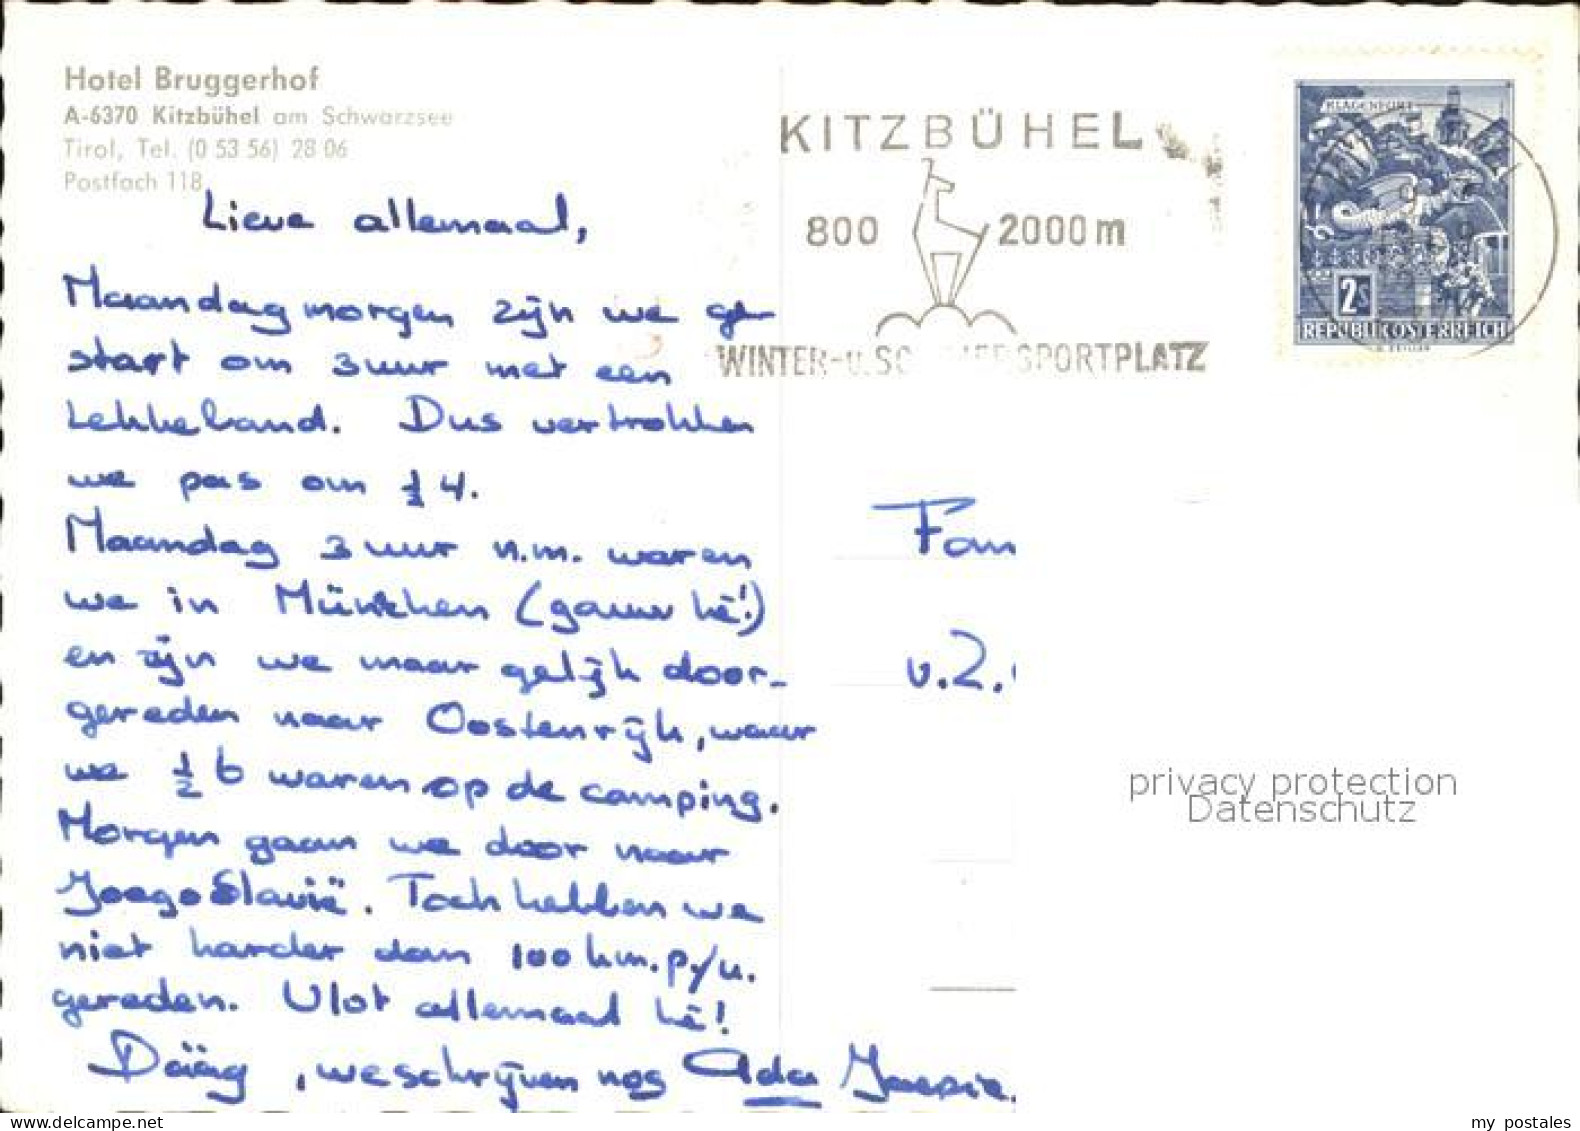 Hotel Bruggerhof
A-6370 Kitzbühel am Schwarzsee
Tirol, Tel. (0 53 56) 28 06
Postfach 118
KITZBÜHEL
800 2000 m
WINTER-u. SPORTPLATZ
KLAGENFURT
2s
REPUBLIK OSTERREICH
Lieve allemaal,
Maandagmorgen zijn we ge-
start om 3 uur met een
lekkeband. Dus vertrokken
we pas om ½ 4.
Maandag 3 uur n.m. waren
we in München (gauw hè!)
en zijn we maar gelijk door-
gereden naar Oostenrijk, waar
we ½ 6 waren op de camping.
Morgen gaan we door naar
Joegoslavië. Toch hebben we
niet harder dan 100 km. p/u.
gereden. Vlot allemaal hè!
Dääg, we schrijven nog Ada
Fam
v.Z.
privacy protection
Datenschutz
my postales